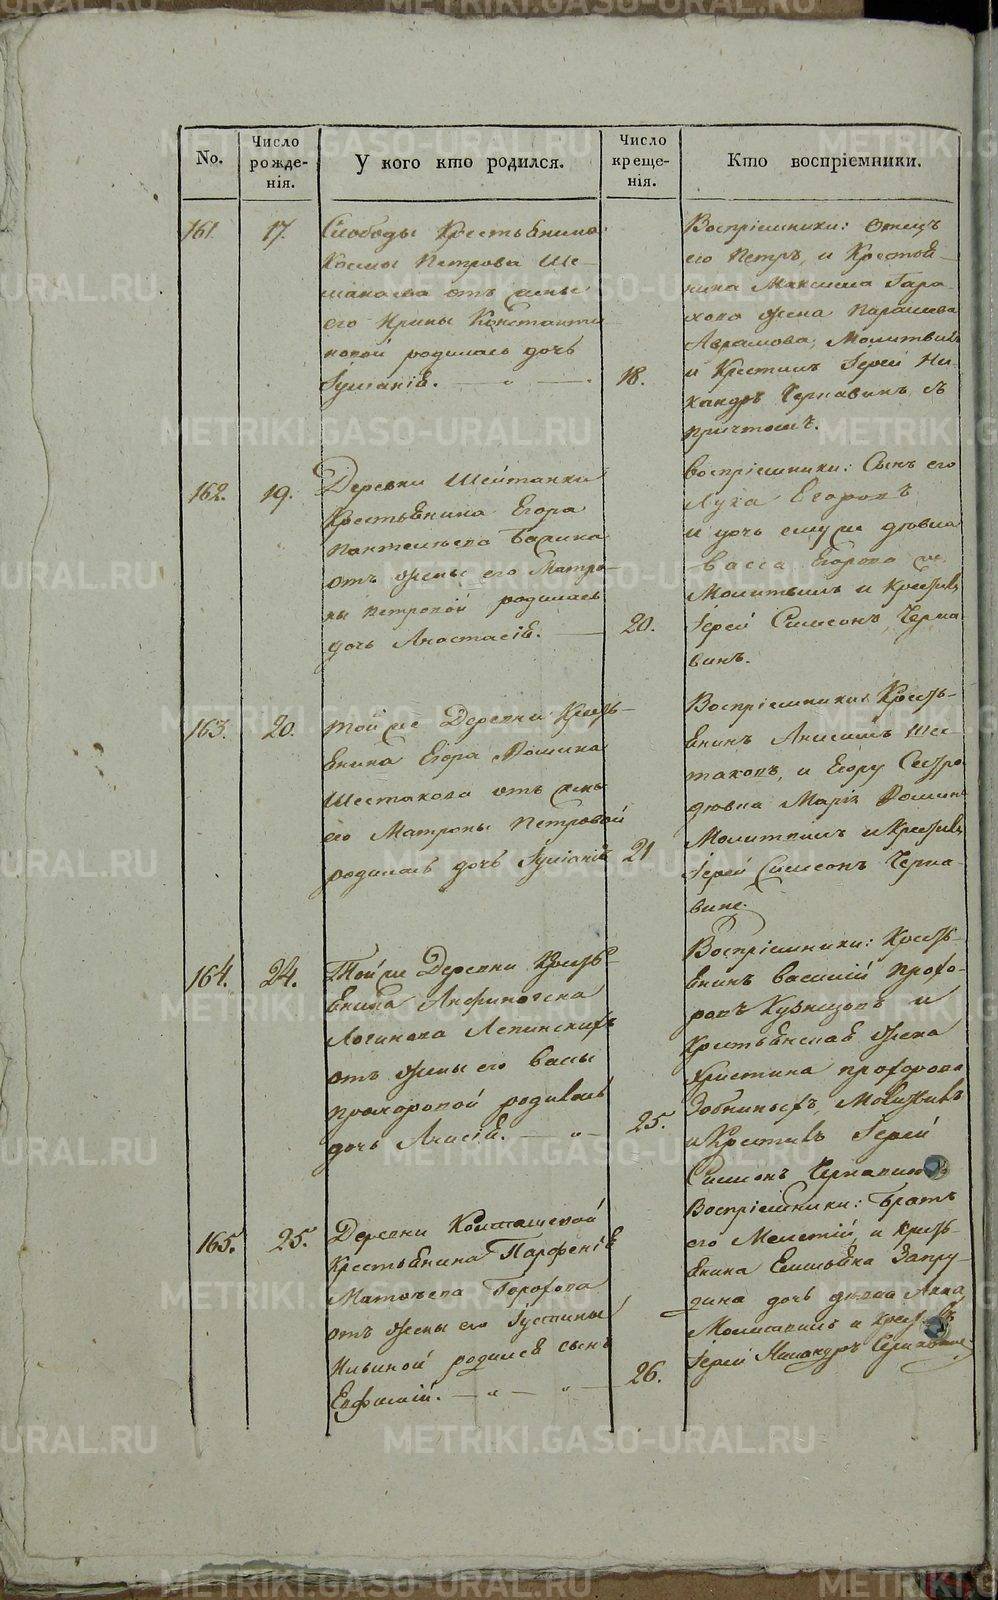 No.
Число рожде-нія.
У кого кто родился.
Число креще-нія.
Кто воспріемники.
161.
17.
Слободы Крестьянина
Космы Петрова Ше-
макова отъ жены
его Ирины Константи
новой родилась дочь
Іуліанія.
18.
Воспріемники: отецъ
его Петръ, и Крестья-
нина Максима Гора-
хова жена Парасковья
Аврамова, Молитвилъ
и Крестилъ Іерей Ни-
кандръ Чернавинъ съ
причтомъ.
162.
19.
Деревни Шейтанки
Крестьянина Егора
Пантелѣева
отъ жены его Матро-
ны Петровой родилась
дочь Анастасія.
20.
воспріемники: Сынъ его
Лука Егоровъ
и дочь ему же дѣвка
Васса Егорова
Молитвилъ и Крестилъ
Іерей Симеонъ Черна-
винъ.
163.
20.
той же Деревни Кресть-
янина Егора Фомина
Шестакова отъ жены
его Матроны Петровой
родилась дочь Іуліанія
21
Воспріемники: Кресть-
янинъ Анисимъ Шес-
таковъ, и Егору Сестра
дѣвка Марія Фомина
Молитвилъ и Крестилъ
Іерей Симеонъ Черна-
винъ.
164.
24.
Той же Деревни Кресть-
янина Анфиногена
Логинова Лепинскихъ
отъ жены его Вассы
Прохоровой родилась
дочь Агнесія.
25.
Воспріемники: Кресть-
янинъ Василій Прохо-
ровъ Кузнецовъ и
Крестьянская жена
Христина Прохорова
Молитвилъ
и Крестилъ Іерей
Симеонъ Чернавинъ
165.
25.
Деревни Колташевой
Крестьянина Парфенія
Матвѣева Горохова
отъ жены его Іустины
Ильиной родился сынъ
Евфимій.
26.
Воспріемники: Братъ
его Мелетій, и Кресть-
янина Емельяна Запру-
дина дочь дѣвка Анна,
Молитвилъ и Крестилъ
Іерей Никандръ Чернавинъ.
METRIKI.GASO-URAL.RU